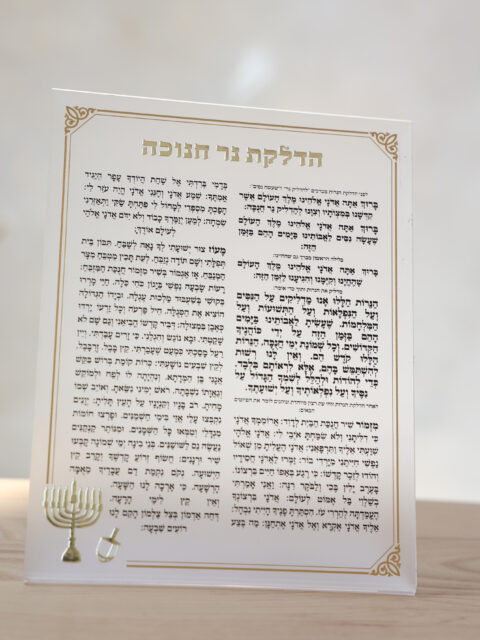 הדלקת נר חנוכה
לפני הדלקת הנרות מברכים "להדליק נר" ו"שעשה נסים":
בָּרוּךְ אַתָּה אֲדֹנָי אֱלֹהֵינוּ מֶלֶךְ הָעוֹלָם אֲשֶׁר
קִדְּשָׁנוּ בְּמִצְוֹתָיו וְצִוָּנוּ לְהַדְלִיק נֵר חֲנֻכָּה:
בָּרוּךְ אַתָּה אֲדֹנָי אֱלֹהֵינוּ מֶלֶךְ הָעוֹלָם
שֶׁעָשָׂה נִסִּים לַאֲבוֹתֵינוּ בַּיָּמִים הָהֵם בַּזְּמַן
הַזֶּה:
בלילה הראשון מברך גם שהחיינו:
בָּרוּךְ אַתָּה אֲדֹנָי אֱלֹהֵינוּ מֶלֶךְ הָעוֹלָם
שֶׁהֶחֱיָנוּ וְקִיְּמָנוּ וְהִגִּיעָנוּ לַזְּמַן הַזֶּה:
מדליק את הנרות ותוך כדי אומר:
הַנֵּרוֹת הַלָּלוּ אָנוּ מַדְלִיקִים עַל הַנִּסִּים
וְעַל הַנִּפְלָאוֹת וְעַל הַתְּשׁוּעוֹת וְעַל
הַמִּלְחָמוֹת, שֶׁעָשִׂיתָ לַאֲבוֹתֵינוּ בַּיָּמִים
הָהֵם בַּזְּמַן הַזֶּה עַל יְדֵי כֹּהֲנֶיךָ
הַקְּדוֹשִׁים. וְכָל שְׁמוֹנַת יְמֵי חֲנֻכָּה, הַנֵּרוֹת
הַלָּלוּ קֹדֶשׁ הֵם, וְאֵין לָנוּ רְשׁוּת
לְהִשְׁתַּמֵּשׁ בָּהֶם, אֶלָּא לִרְאוֹתָם בִּלְבַד,
כְּדֵי לְהוֹדוֹת וּלְהַלֵּל לְשִׁמְךָ הַגָּדוֹל עַל
נִסֶּיךָ וְעַל נִפְלְאוֹתֶיךָ וְעַל יְשׁוּעָתֶךָ.
מִזְמוֹר שִׁיר חֲנֻכַּת הַבַּיִת לְדָוִד: אֲרוֹמִמְךָ אֲדֹנָי
כִּי דִלִּיתָנִי וְלֹא שִׂמַּחְתָּ אֹיְבַי לִי: אֲדֹנָי אֱלֹהָי
שִׁוַּעְתִּי אֵלֶיךָ וַתִּרְפָּאֵנִי: אֲדֹנָי הֶעֱלִיתָ מִן שְׁאוֹל
נַפְשִׁי חִיִּיתַנִי מִיָּרְדִי בוֹר: זַמְּרוּ לַאֲדֹנָי חֲסִידָיו
וְהוֹדוּ לְזֵכֶר קָדְשׁוֹ: כִּי רֶגַע בְּאַפּוֹ חַיִּים בִּרְצוֹנוֹ:
בָּעֶרֶב יָלִין בֶּכִי וְלַבֹּקֶר רִנָּה: וַאֲנִי אָמַרְתִּי
בְשַׁלְוִי בַּל אֶמּוֹט לְעוֹלָם: אֲדֹנָי בִּרְצוֹנְךָ
הֶעֱמַדְתָּה לְהַרְרִי עֹז: הִסְתַּרְתָּ פָנֶיךָ הָיִיתִי נִבְהָל:
אֵלֶיךָ אֲדֹנָי אֶקְרָא וְאֶל אֲדֹנָי אֶתְחַנָּן: מַה בֶּצַע
בְּדָמִי בְּרִדְתִּי אֶל שָׁחַת הֲיוֹדְךָ עָפָר הֲיַגִּיד
אֲמִתֶּךָ: שְׁמַע אֲדֹנָי וְחָנֵּנִי אֲדֹנָי הֱיֵה עֹזֵר לִי:
הָפַכְתָּ מִסְפְּדִי לְמָחוֹל לִי פִּתַּחְתָּ שַׂקִּי וַתְּאַזְּרֵנִי
שִׂמְחָה: לְמַעַן יְזַמֶּרְךָ כָבוֹד וְלֹא יִדֹּם אֲדֹנָי אֱלֹהַי
לְעוֹלָם אוֹדֶךָּ:
מָעוֹז צוּר יְשׁוּעָתִי לְךָ נָאֶה לְשַׁבֵּחַ. תִּכּוֹן בֵּית
תְּפִלָּתִי וְשָׁם תּוֹדָה נְזַבֵּחַ. לְעֵת תָּכִין מַטְבֵּחַ מִצָּר
הַמְנַבֵּחַ. אָז אֶגְמוֹר בְּשִׁיר מִזְמוֹר חֲנֻכַּת הַמִּזְבֵּחַ:
רָעוֹת שָׂבְעָה נַפְשִׁי בְּיָגוֹן כֹּחִי כָּלָה. חַיַּי מֵרְרוּ
בְּקוֹשִׁי בְּשִׁעְבּוּד מַלְכוּת עֶגְלָה. וּבְיָדוֹ הַגְּדוֹלָה
הוֹצִיא אֶת הַסְּגֻלָּה. חֵיל פַּרְעֹה וְכָל זַרְעוֹ יָרְדוּ
כְּאֶבֶן בִּמְצוּלָה: דְּבִיר קָדְשׁוֹ הֱבִיאַנִי וְגַם שָׁם לֹא
שָׁקַטְתִּי. וּבָא נוֹגֵשׂ וְהִגְלַנִי. כִּי זָרִים עָבַדְתִּי. וְיֵין
רַעַל מָסַכְתִּי כִּמְעַט שֶׁעָבַרְתִּי. קֵץ בָּבֶל. זְרֻבָּבֶל.
לְקֵץ שִׁבְעִים נוֹשָׁעְתִּי: כְּרוֹת קוֹמַת בְּרוֹשׁ בִּקֵּשׁ
אֲגָגִי בֶּן הַמְּדָתָא. וְנִהְיָתָה לוֹ לְפַח וּלְמוֹקֵשׁ
וְגַאֲוָתוֹ נִשְׁבָּתָה. רֹאשׁ יְמִינִי נִשֵּׂאתָ. וְאוֹיֵב שְׁמוֹ
מָחִיתָ. רֹב בָּנָיו וְקִנְיָנָיו עַל הָעֵץ תָּלִיתָ: יְוָנִים
נִקְבְּצוּ עָלַי אֲזַי בִּימֵי חַשְׁמַנִּים. וּפָרְצוּ חוֹמוֹת
מִגְדָּלַי וְטִמְּאוּ כָּל הַשְּׁמָנִים. וּמִנּוֹתַר קַנְקַנִּים
נַעֲשָׂה נֵס לַשּׁוֹשַׁנִּים. בְּנֵי בִינָה יְמֵי שְׁמוֹנָה קָבְעוּ
שִׁיר וּרְנָנִים: חֲשׂוֹף זְרוֹעַ קָדְשֶׁךָ וְקָרֵב קֵץ
הַיְשׁוּעָה. נְקֹם נִקְמַת דַּם עֲבָדֶיךָ מֵאֻמָּה
הָרְשָׁעָה. כִּי אָרְכָה לָנוּ הַשָּׁעָה.
וְאֵין קֵץ לִימֵי הָרָעָה.
דְּחֵה אַדְמוֹן בְּצֵל צַלְמוֹן הָקֵם לָנוּ
רוֹעִים שִׁבְעָה: